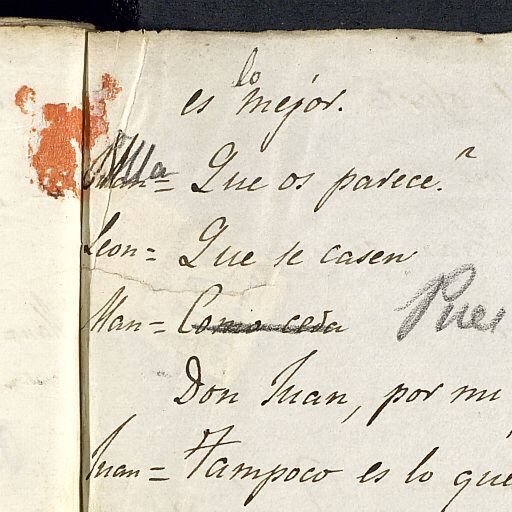 lo
es mejor.
Juan = Que os parece.
Leon = Que se casen
Man = Como ceda Pues
Don Juan, por mi
Juan = Tampoco es lo que